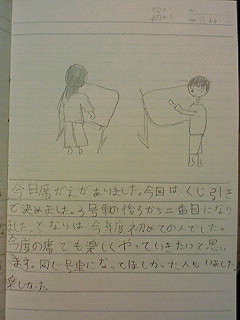 今日席がえがありました。今回は、くじ引き
で決めました。3号車の後ろから二番目になり
ました。となりは今年度初めての人でした。
今度の席でも楽しくやっていきたいと思い
ます。同じ号車になってほしかった人もいました。
楽しかった。